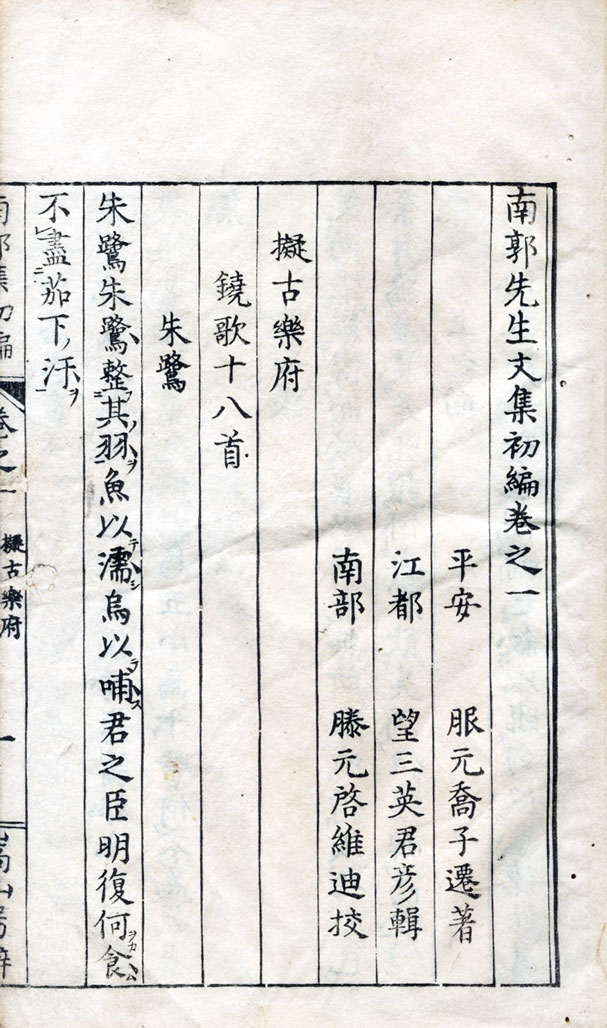 南郭先生文集初編卷之一
平安　服元喬子遷著
江都　望三英君彥輯
南部　滕元啓維迪挍
擬古樂府
鐃歌十八首
朱鷺
朱鷺朱鷺整其羽魚以濡烏以哺君之臣明復何食
不盡茄下汙
南郭集初編　卷之一　擬古樂府　一　嵩山房